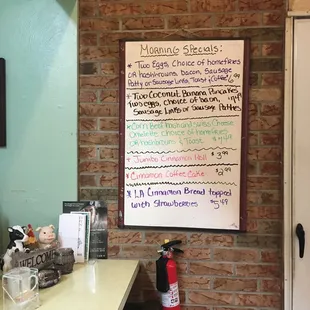 Morning Specials:
* Two Eggs, Choice of homefries
or hashbrowns, bacon, Sausage
Patty or Sausage Links, Toast & Coffee
* Two Coconut Banana Pancakes
Two eggs, choice of bacon,
Sausage Links or Sausage Patties
Corn Beef Hash and Swiss Cheese
Omelette Choice of homefries
or Hashbrowns & Toast
+ Jumbo Cinnamon Roll $3.99
* Cinnamon Coffee Cake $2.99
* LA Cinnamon Bread topped
with Strawberries $5.49
WELCOME